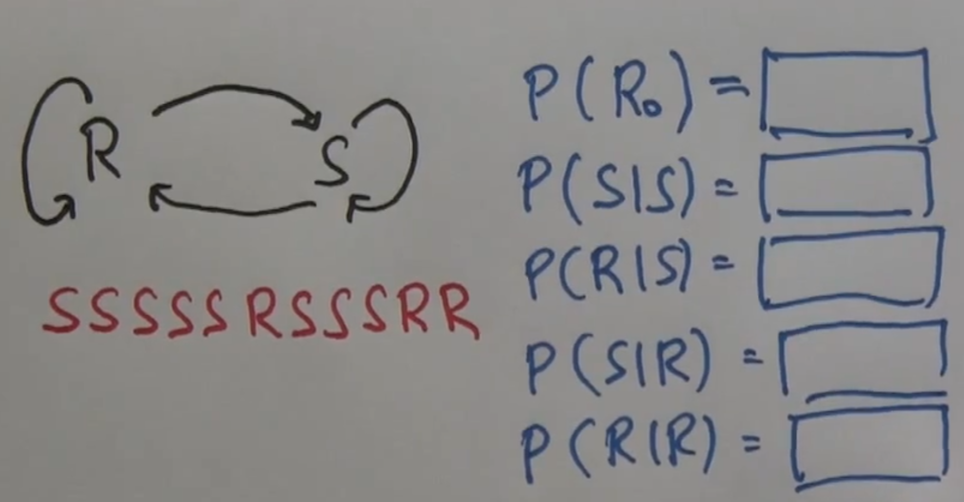 R S
SSSSSRSSSRR
P(R₀) =
P(S|S) =
P(R|S) =
P(S|R) =
P(R|R) =